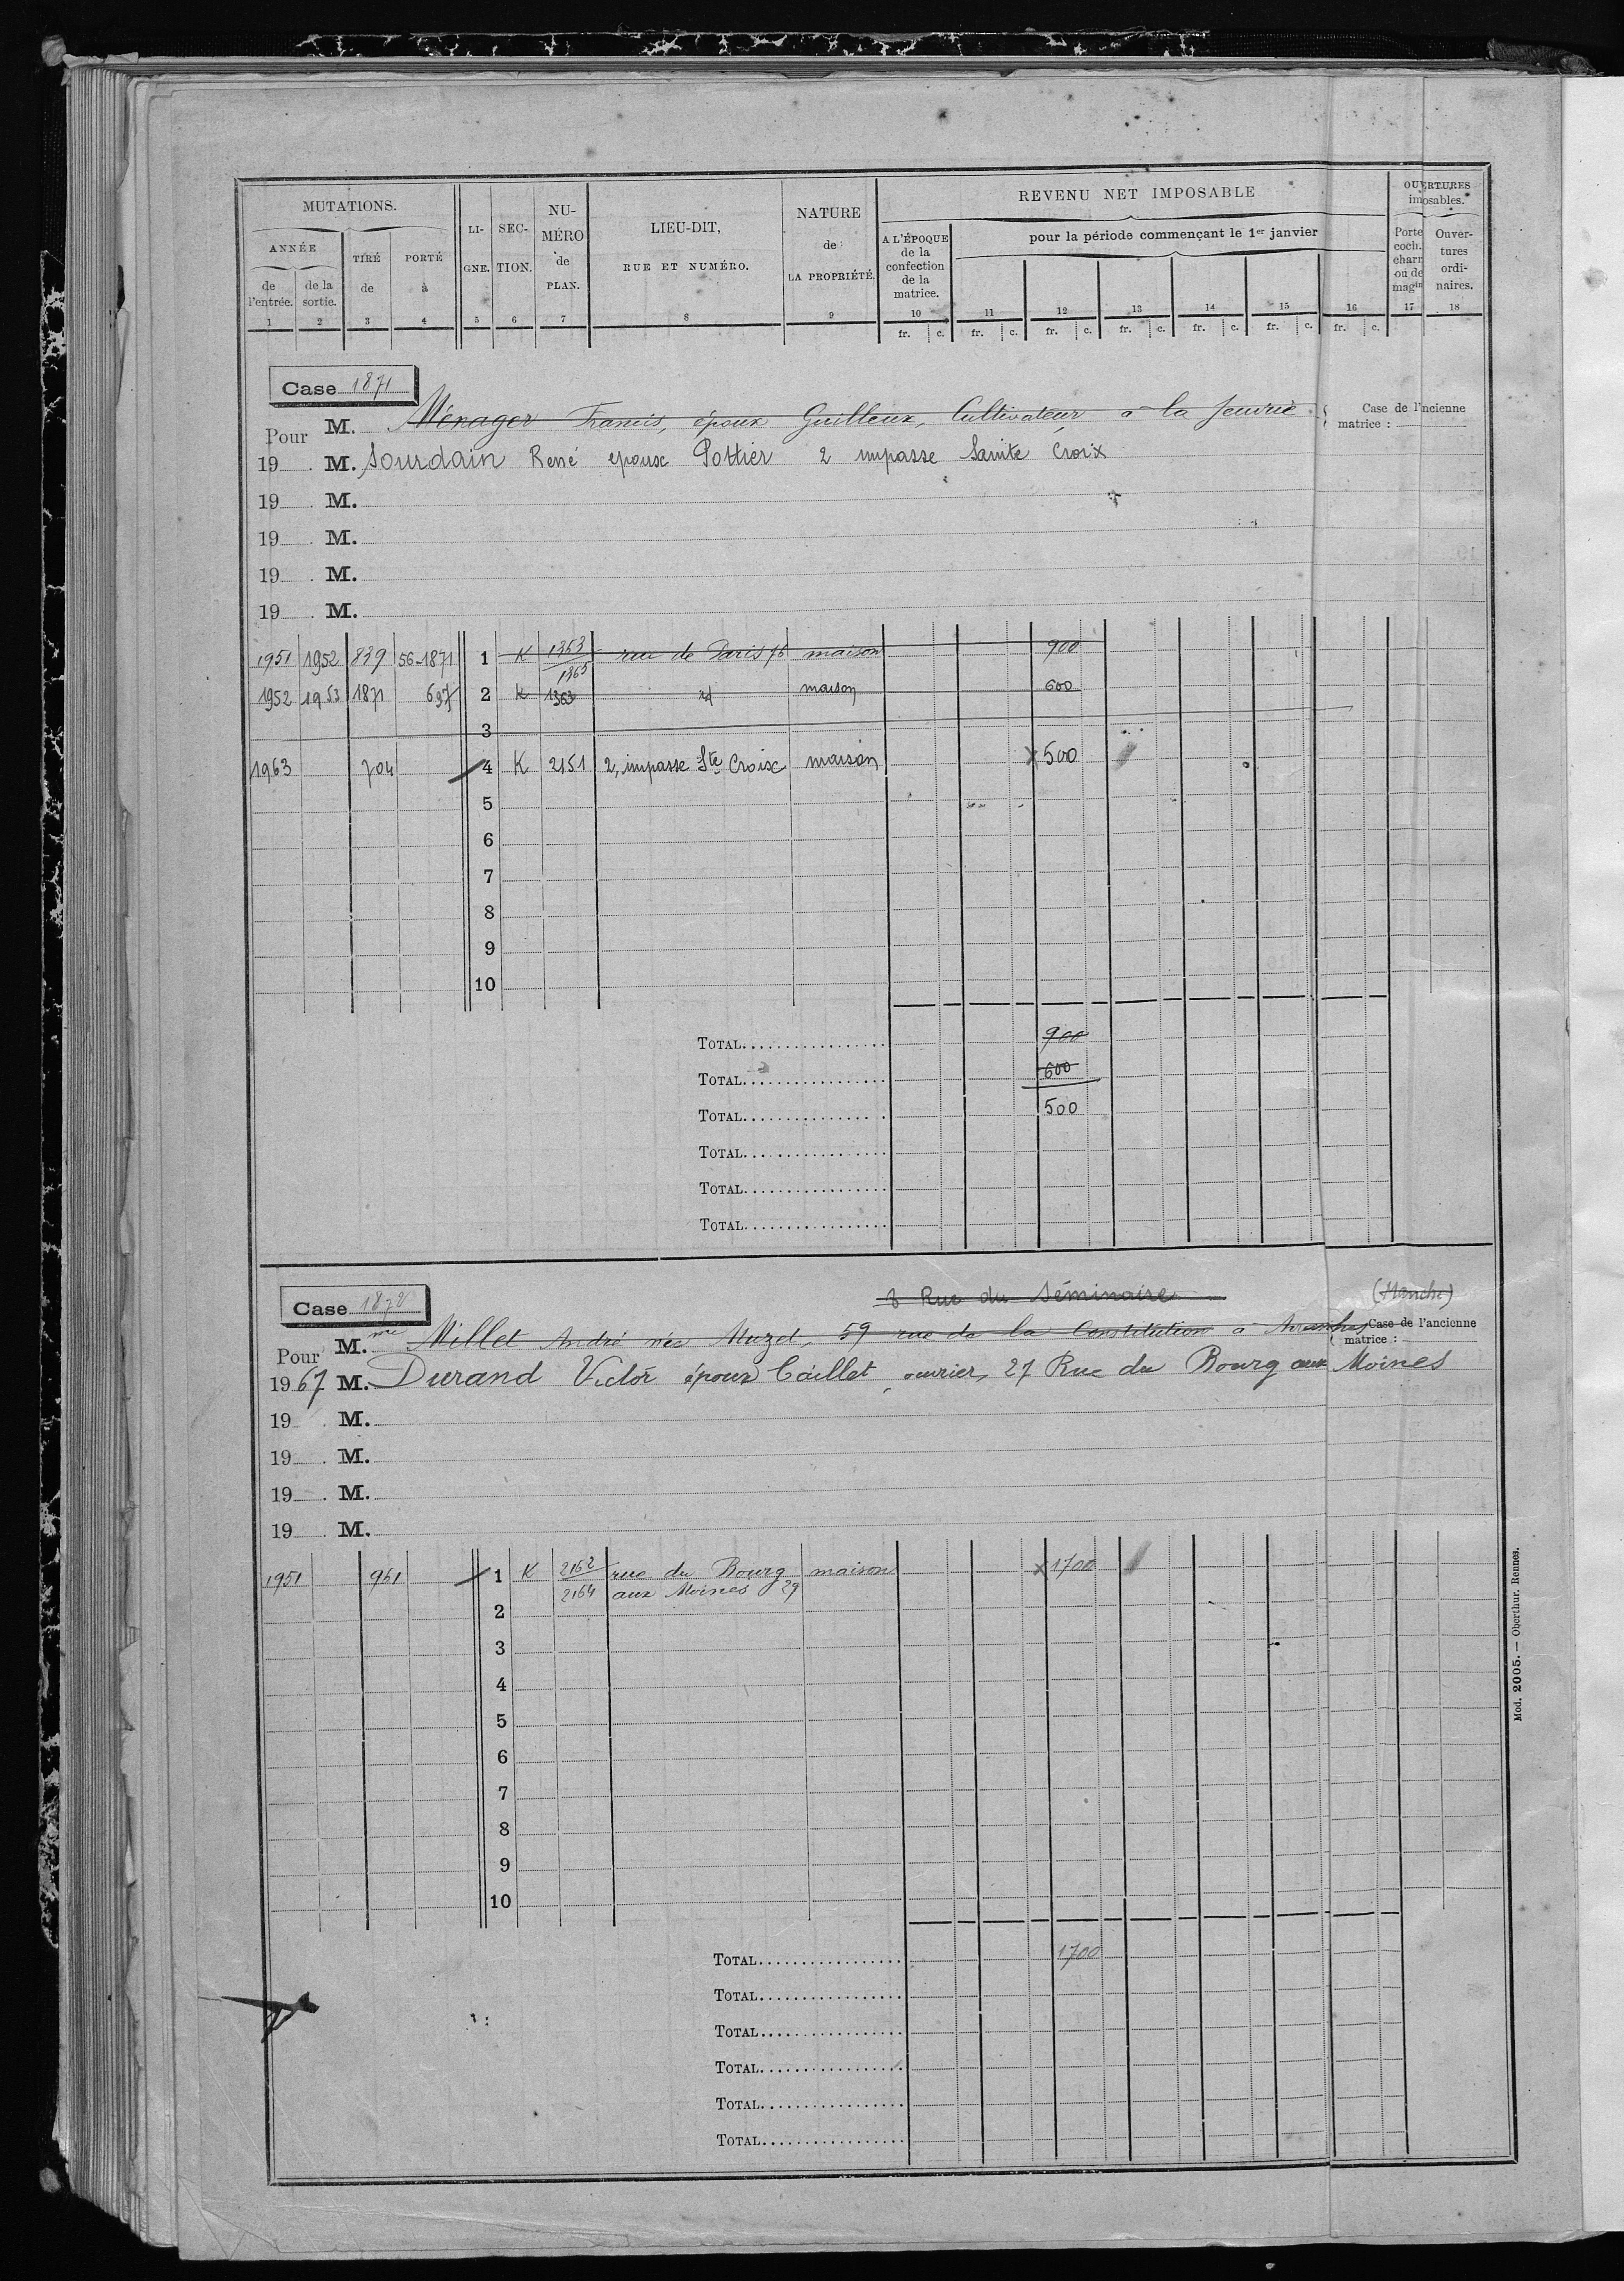 MUTATIONS.
ANNÉE
de l'entrée.
de la sortie.
TIRÉ de
PORTÉ à
LI-GNE.
SEC-TION.
NU-MÉRO de PLAN.
LIEU-DIT,
RUE ET NUMÉRO.
NATURE
de
LA PROPRIÉTÉ.
REVENU NET IMPOSABLE
A L'ÉPOQUE de la confection de la matrice.
pour la période commençant le 1er janvier
OUVERTURES imposables.
Porte coch. charr ou de magin
Ouver-tures ordi-naires.
1 2 3 4 5 6 7 8 9 10 11 12 13 14 15 16 17 18
fr. c. fr. c. fr. c. fr. c. fr. c. fr. c. fr. c.
Case 1871
Pour M. Ménager Francis, époux Guilleux, Cultivateur à la
Case de l'ncienne matrice :
19 M. Sourdain René epouse Pottier 2 impasse Sainte Croix
19 M.
19 M.
19 M.
19 M.
1951 1952 839 56-1871 1 K 1363 1365 rue de Paris 76 maison 900
1952 1953 1871 697 2 K 1363 id maison 600
3
1963 704 4 K 2151 2, impasse Ste Croix maison x 500
5
6
7
8
9
10
TOTAL 900
TOTAL 600
TOTAL 500
TOTAL
TOTAL
TOTAL
Case 1872
8 Rue du Séminaire (Manche)
Pour Mme Millet André née Muzet, 59 rue de la Constitution à Avranches
Case de l'ancienne matrice :
1967 M. Durand Victor époux Caillet, ouvrier, 27 Rue du Bourg aux Moines
19 M.
19 M.
19 M.
19 M.
1951 961 1 K 2162 2164 rue du Bourg aux Moines 29 maison x 1700
2
3
4
5
6
7
8
9
10
TOTAL 1700
TOTAL
TOTAL
TOTAL
TOTAL
TOTAL
Mod. 2005. — Oberthur. Rennes.